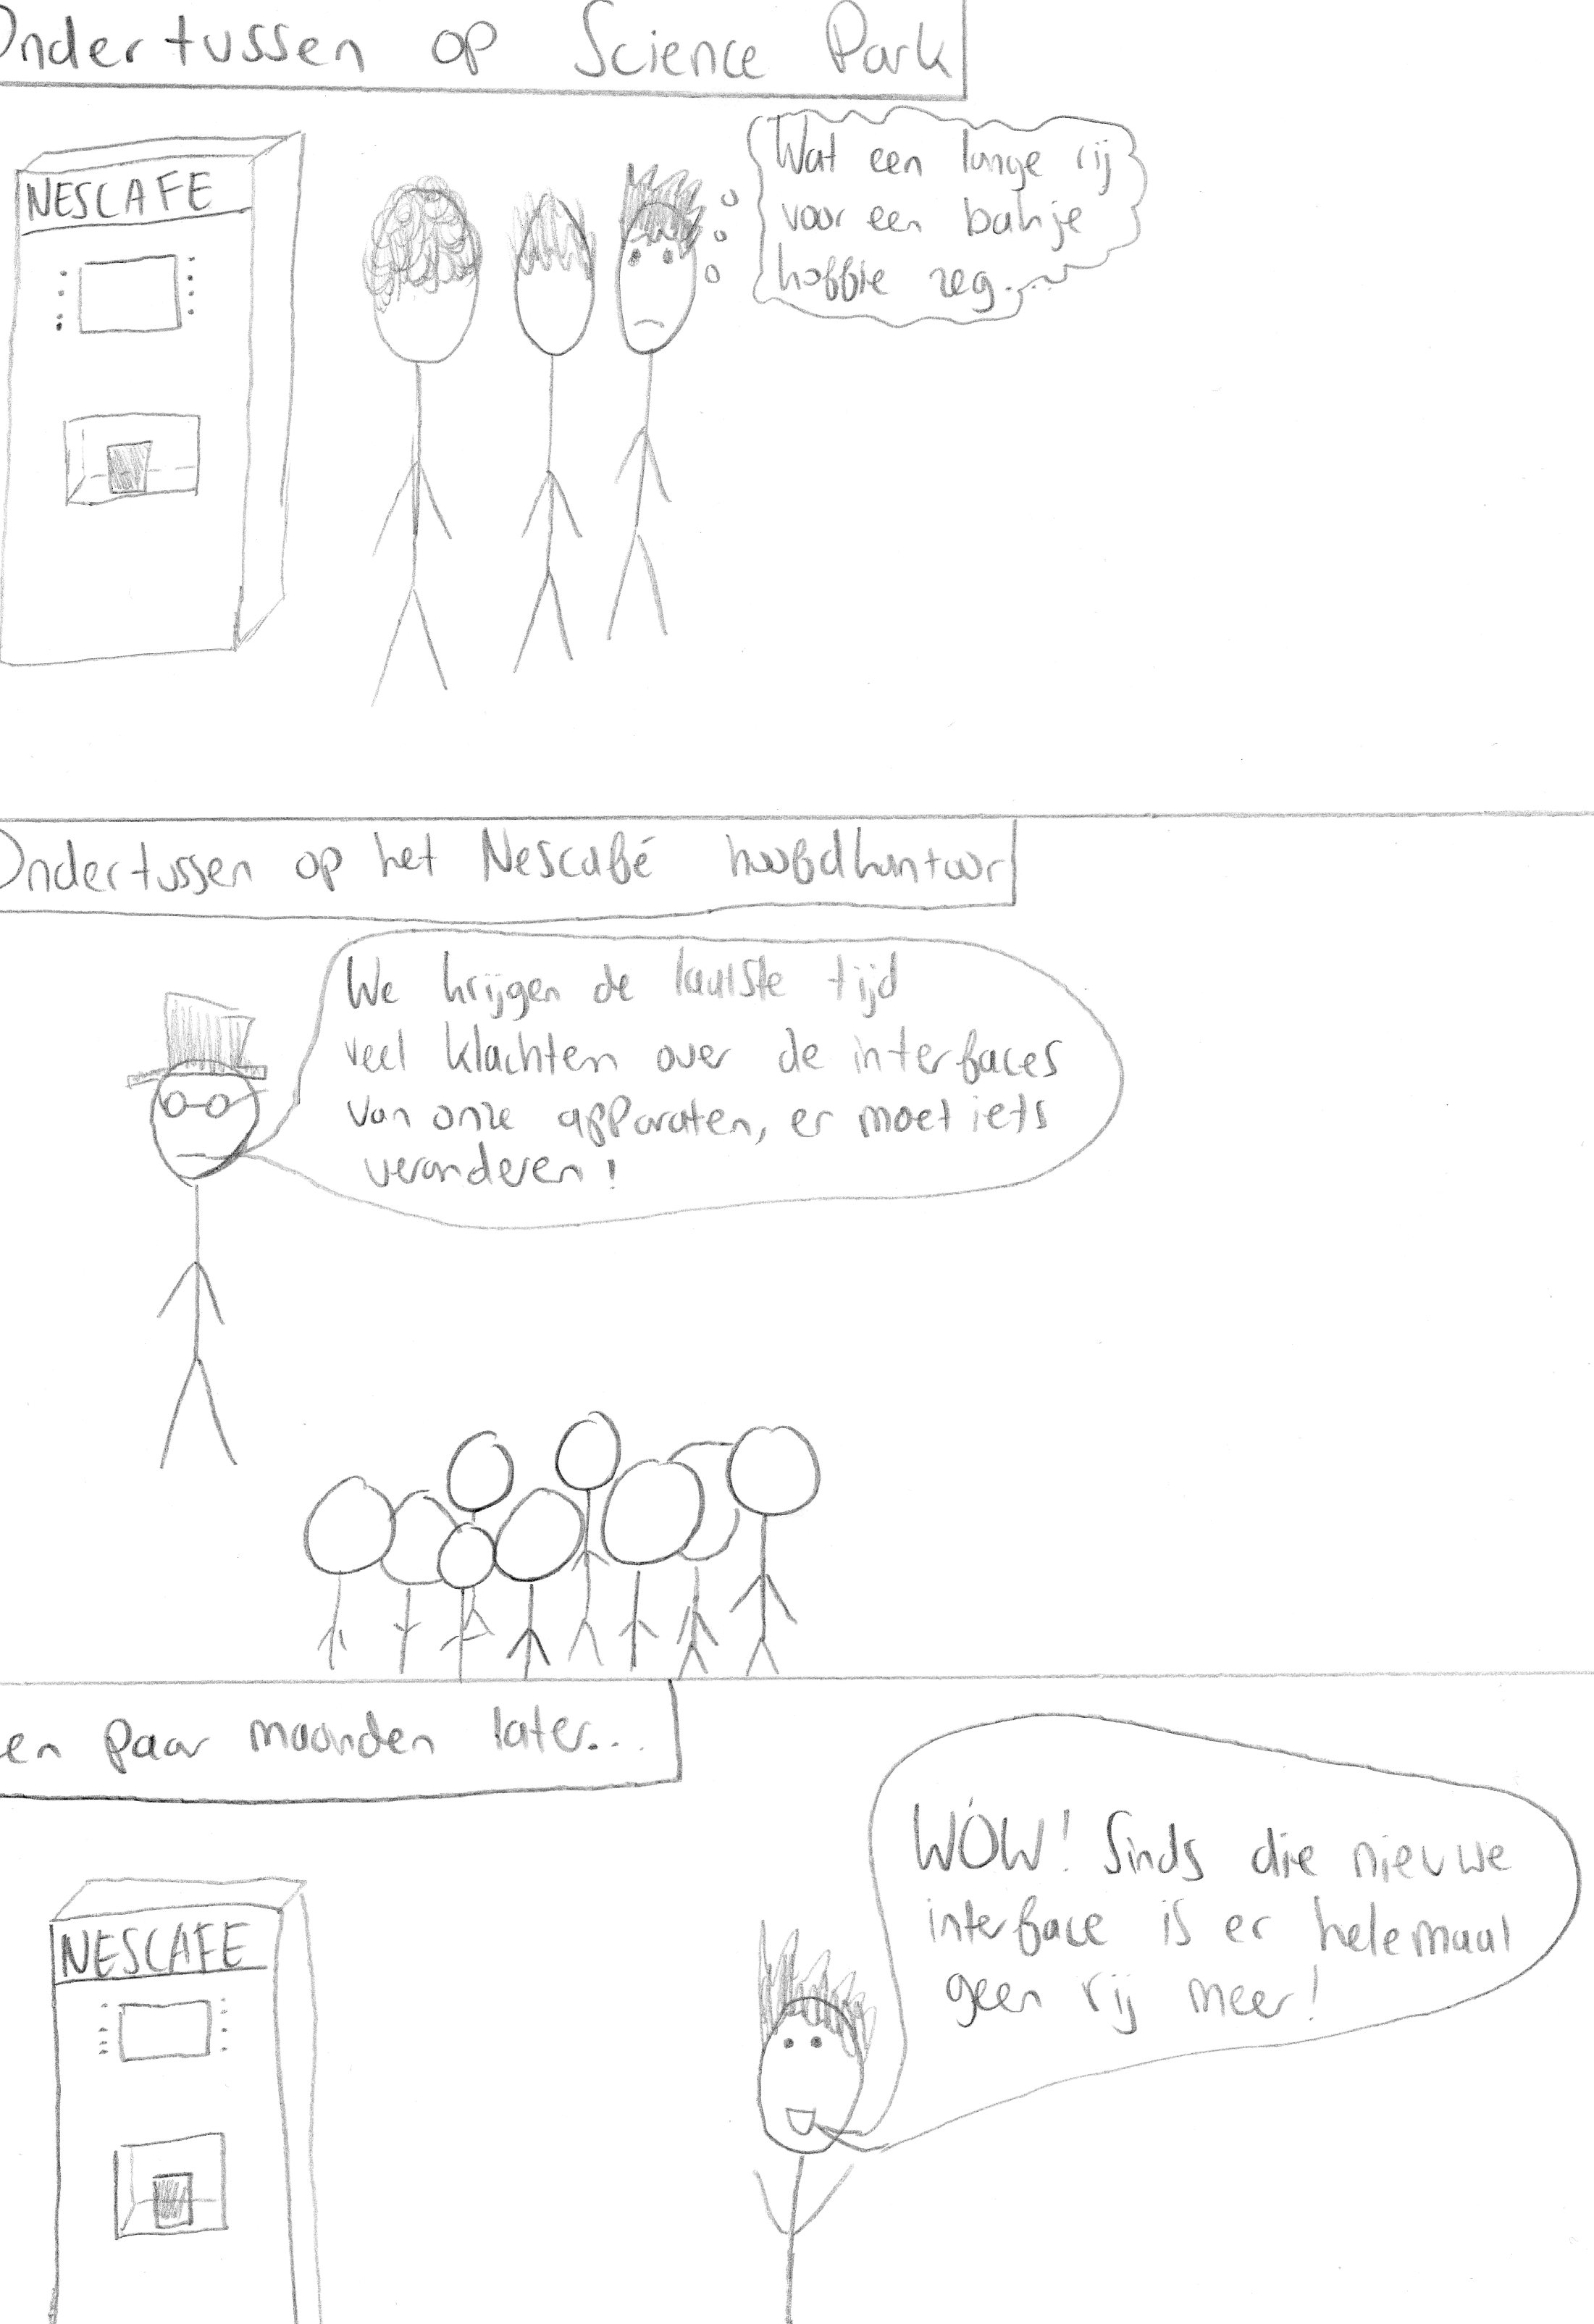 Ondertussen op Science Park
NESCAFE
Wat een lange rij
voor een bakje
koffie zeg...
Ondertussen op het Nescafé hoofdkantoor
We krijgen de laatste tijd
veel klachten over de interfaces
van onze apparaten, er moet iets
veranderen!
en paar maanden later...
NESCAFE
WOW! Sinds die nieuwe
interface is er helemaal
geen rij meer!